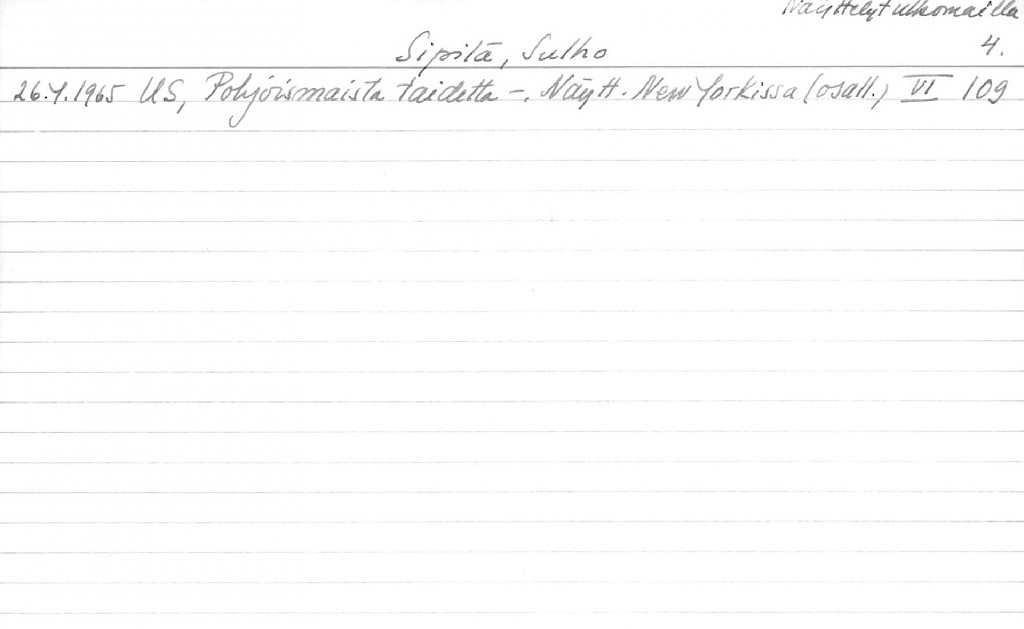 Näyttelyt ulkomailla
4.
Sipilä, Sulho
26.4.1965 US, Pohjoismaista taidetta -. Näytt. New Yorkissa (osall.) VI 109